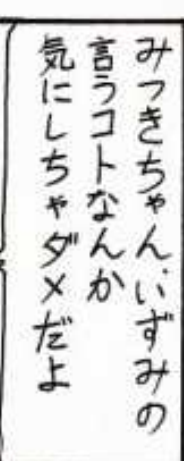 みつきちゃんいずみの
言うコトなんか
気にしちゃダメだよ